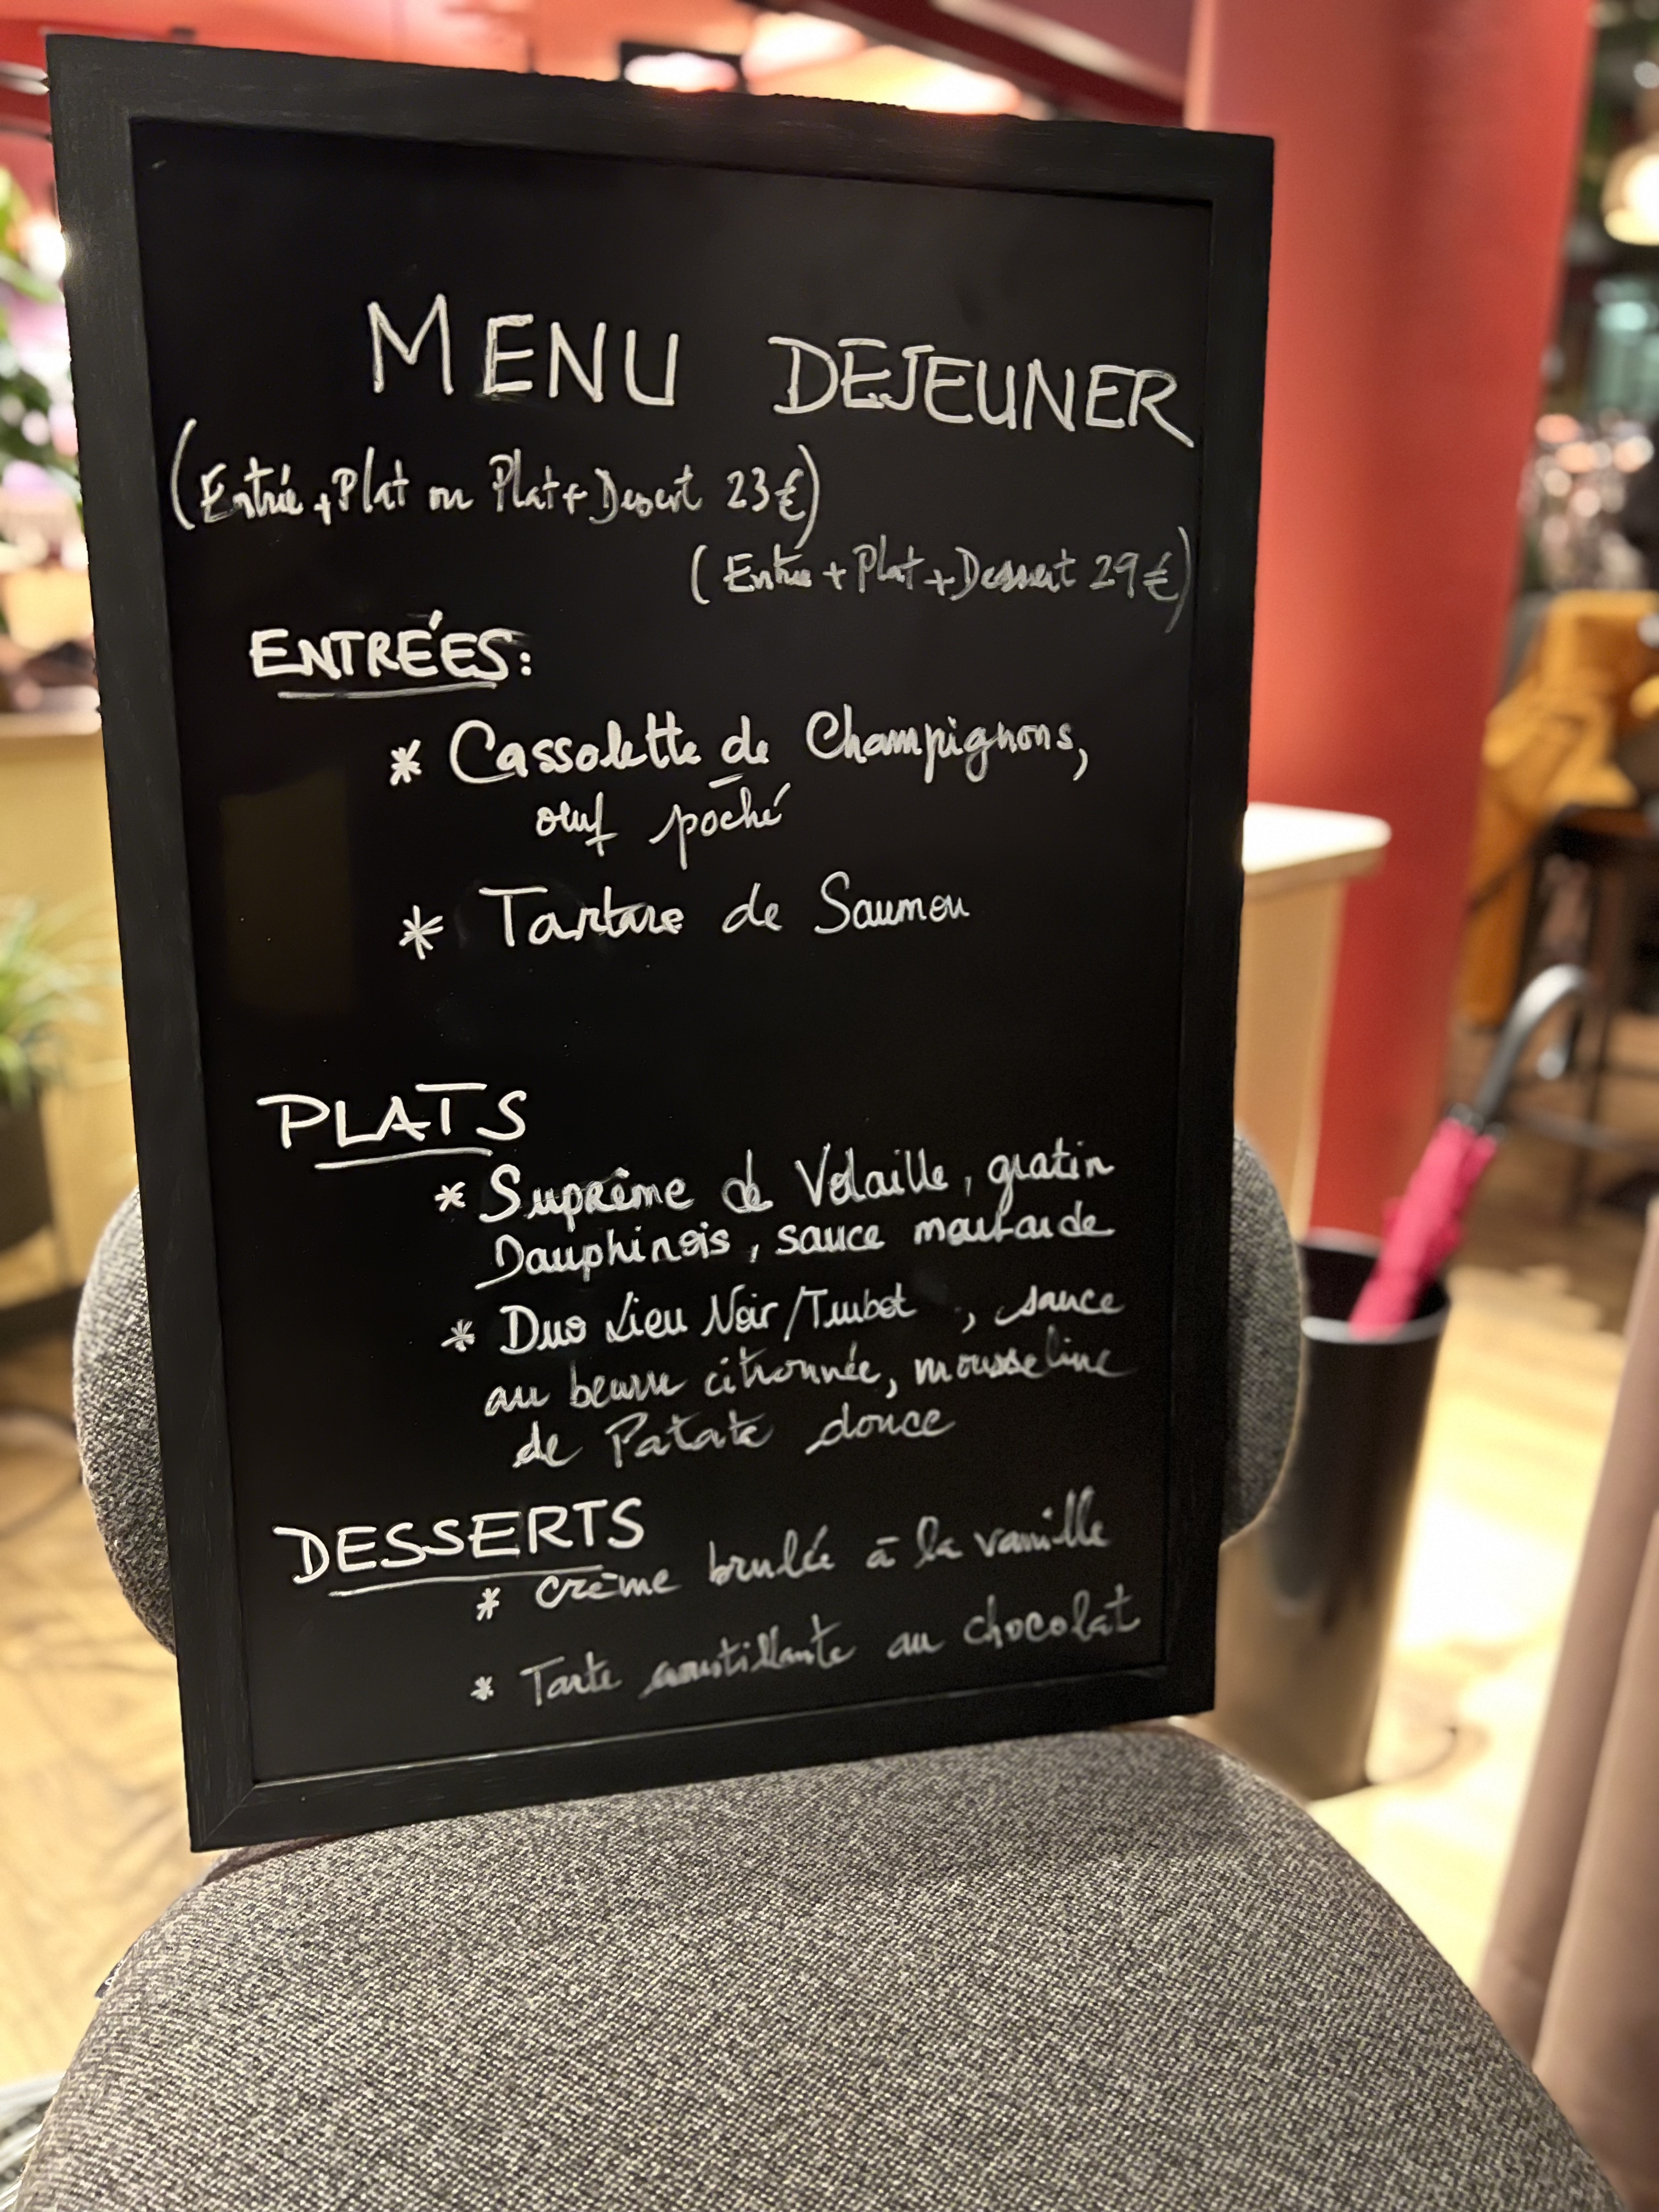 MENU DEJEUNER
(Entrée + Plat ou Plat + Dessert 23€)
(Entrée + Plat + Dessert 29€)
ENTRÉES:
* Cassolette de Champignons,
œuf poché
* Tartare de Saumon
PLATS
* Suprême de Volaille, gratin
Dauphinois, sauce moutarde
* Duo Lieu Noir/Turbot , sauce
au beurre citronnée, mousseline
de Patate douce
DESSERTS
* crème brulée à la vanille
* Tarte croustillante au chocolat